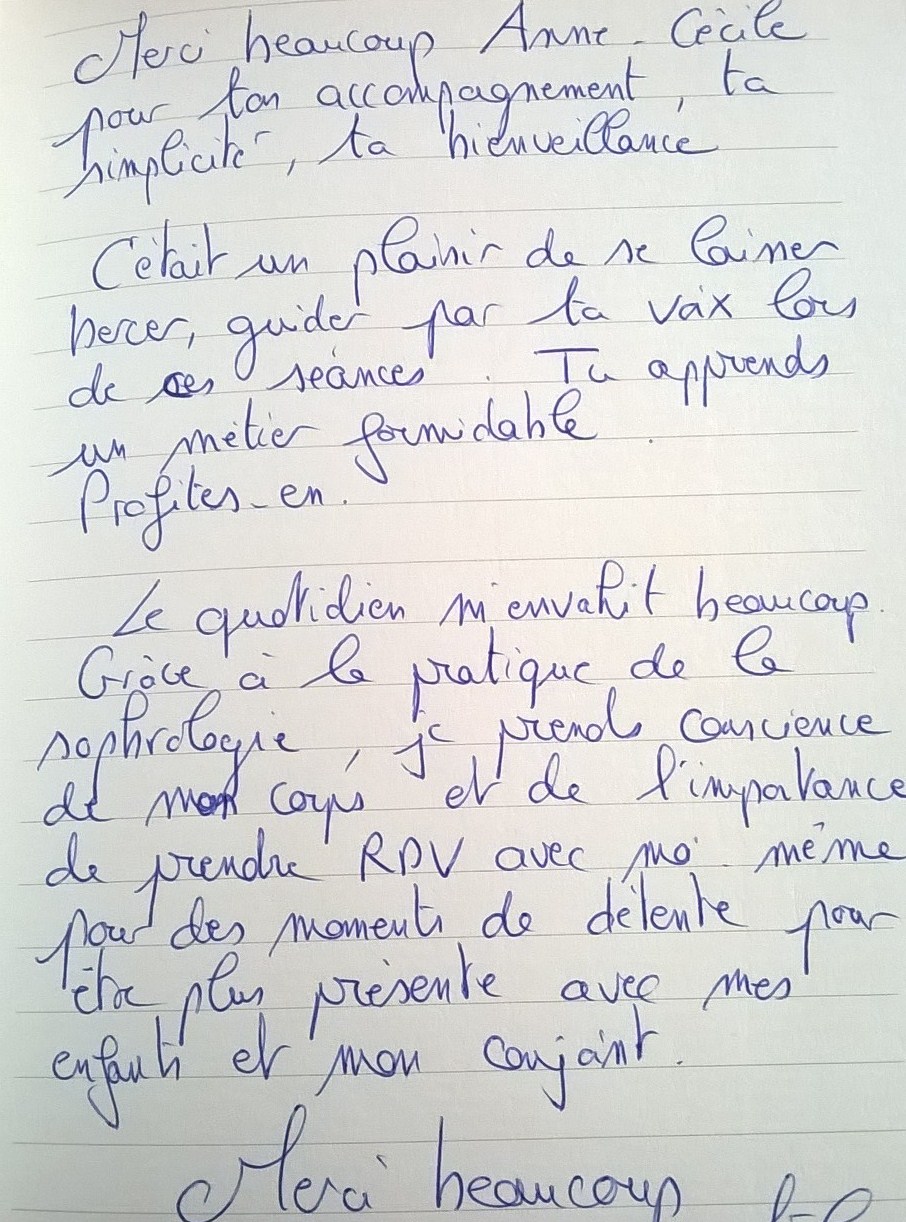 Merci beaucoup Anne-Cécile
pour ton accompagnement, ta
simplicité, ta bienveillance
C'était un plaisir de se laisser
bercer, guider par ta voix lors
de ces séances. Tu apprends
un métier formidable.
Profites-en.
Le quotidien m'envahit beaucoup.
Grâce à la pratique de la
sophrologie, je prends conscience
de mon corps et de l'importance
de prendre RDV avec moi même
pour des moments de détente pour
être plus présente avec mes
enfants et mon conjoint.
Merci beaucoup